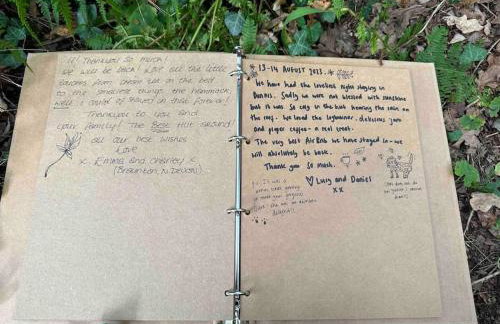 Thankyou so much!
We will be back. Love all the little
touches from cream tea in the
to the smallest things the hammock,
well I could of stayed in that forever!
Thankyou to you and
your family! The Best Hut around!
all our best wishes
Love
x Emma and Wesley x
(Braunton, N. Devon)
13-14 AUGUST 2023.
We have had the loveliest night staying in
Dennis. Sadly we were not blessed with sunshine
but it was so cosy in the hut hearing the rain on
the roof. We loved the logburner, delicious jam
and proper coffee - a real treat.
The very best AirBnb we have stayed in - we
will absolutely be back.
Thank you so much.
Lucy and Daniel
xx